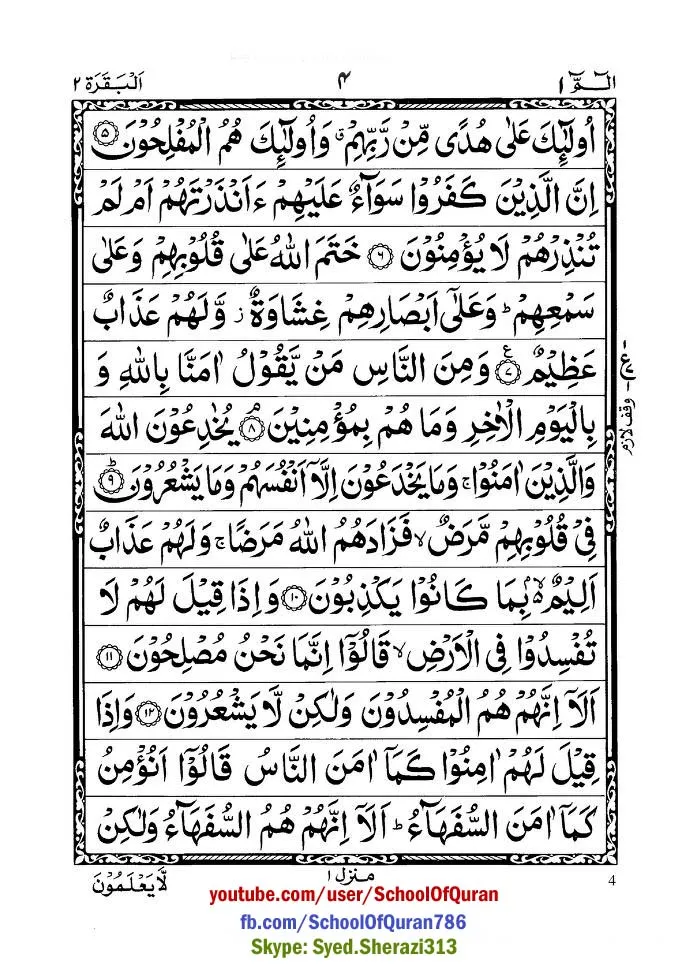 الٓـمّٓ ١ ٤ اَلْبَقَرَة ٢
اُولٰٓئِكَ عَلٰى هُدًى مِّنْ رَّبِّهِمْ ۗ وَاُولٰٓئِكَ هُمُ الْمُفْلِحُوْنَ ۵
اِنَّ الَّذِيْنَ كَفَرُوْا سَوَآءٌ عَلَيْهِمْ ءَاَنْذَرْتَهُمْ اَمْ لَمْ
تُنْذِرْهُمْ لَا يُؤْمِنُوْنَ ۶ خَتَمَ اللّٰهُ عَلٰى قُلُوْبِهِمْ وَعَلٰى
سَمْعِهِمْ ؕ وَعَلٰٓى اَبْصَارِهِمْ غِشَاوَةٌ ز وَّلَهُمْ عَذَابٌ
عَظِيْمٌ ۷ ع وَمِنَ النَّاسِ مَنْ يَّقُوْلُ اٰمَنَّا بِاللّٰهِ وَ
بِالْيَوْمِ الْاٰخِرِ وَمَا هُمْ بِمُؤْمِنِيْنَ ۘ ۸ يُخٰدِعُوْنَ اللّٰهَ
وَالَّذِيْنَ اٰمَنُوْا ۚ وَمَا يَخْدَعُوْنَ اِلَّآ اَنْفُسَهُمْ وَمَا يَشْعُرُوْنَ ؕ ۹
فِيْ قُلُوْبِهِمْ مَّرَضٌ ۙ فَزَادَهُمُ اللّٰهُ مَرَضًا ۚ وَلَهُمْ عَذَابٌ
اَلِيْمٌ ۢ ۙ بِمَا كَانُوْا يَكْذِبُوْنَ ۱۰ وَاِذَا قِيْلَ لَهُمْ لَا
تُفْسِدُوْا فِي الْاَرْضِ ۙ قَالُوْٓا اِنَّمَا نَحْنُ مُصْلِحُوْنَ ۱۱
اَلَآ اِنَّهُمْ هُمُ الْمُفْسِدُوْنَ وَلٰكِنْ لَّا يَشْعُرُوْنَ ۱۲ وَاِذَا
قِيْلَ لَهُمْ اٰمِنُوْا كَمَآ اٰمَنَ النَّاسُ قَالُوْٓا اَنُؤْمِنُ
كَمَآ اٰمَنَ السُّفَهَآءُ ؕ اَلَآ اِنَّهُمْ هُمُ السُّفَهَآءُ وَلٰكِنْ
لَّا يَعْلَمُوْنَ منزل ١ 4
وقف لازم
youtube.com/user/SchoolOfQuran
fb.com/SchoolOfQuran786
Skype: Syed.Sherazi313